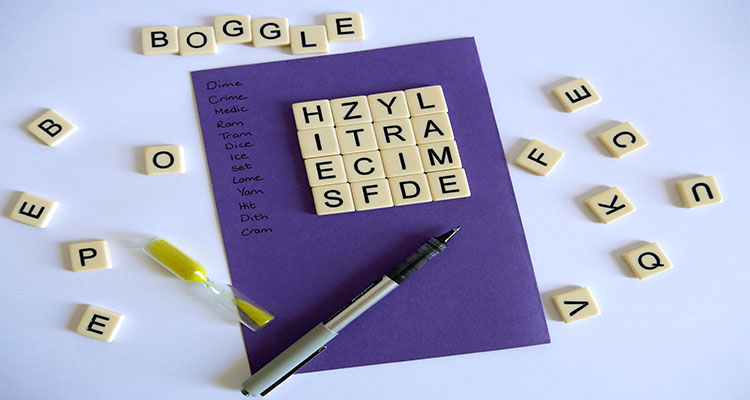 BOGGLE
Dime
Crime
Medic
Ram
Tram
Dice
Ice
set
Lame
Yam
Hit
Dith
Cram
HZYL
ITRA
ECIM
SFDE
B
O
E
P
E
E
C
F
K
U
Q
V